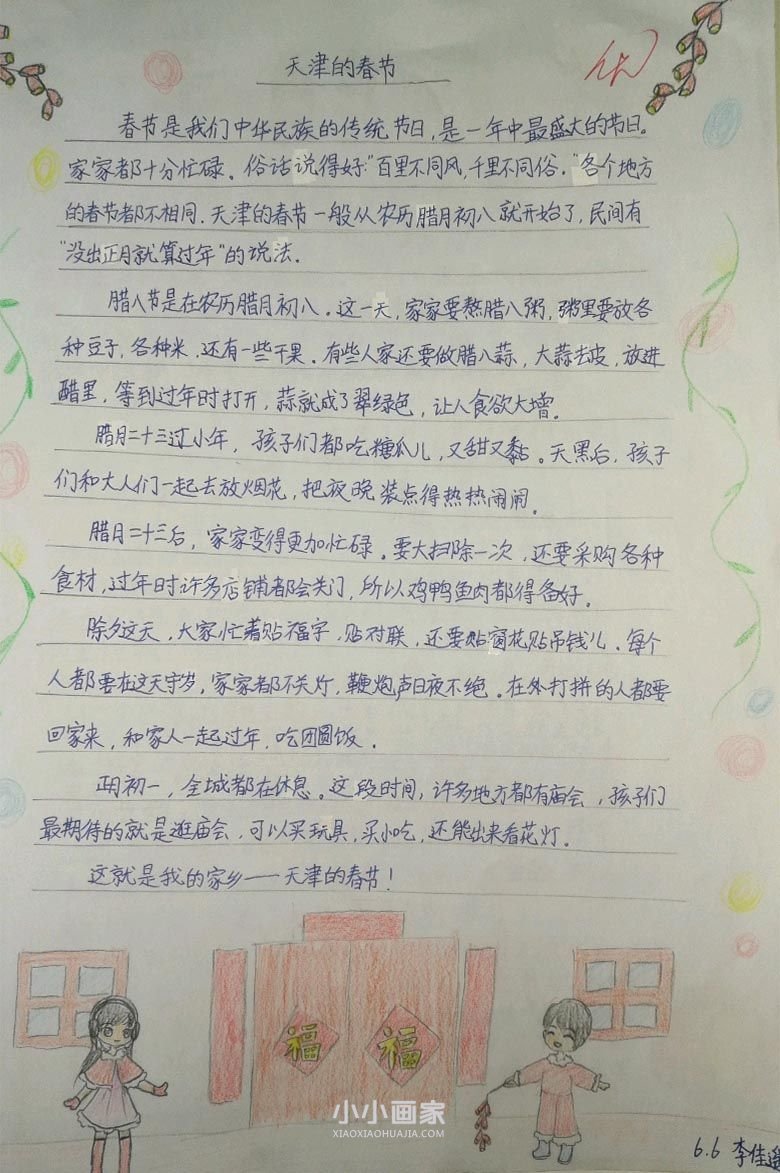 天津的春节
优
春节是我们中华民族的传统节日，是一年中最盛大的节日。
家家都十分忙碌。俗话说得好："百里不同风，千里不同俗。"各个地方
的春节都不相同．天津的春节一般从农历腊月初八就开始了，民间有
"没出正月就算过年"的说法．
腊八节是在农历腊月初八．这一天，家家要熬腊八粥，粥里要放各
种豆子，各种米，还有一些干果．有些人家还要做腊八蒜，大蒜去皮，放进
醋里，等到过年时打开，蒜就成了翠绿色，让人食欲大增。
腊月二十三过小年，孩子们都吃糖瓜儿，又甜又黏。天黑后，孩子
们和大人们一起去放烟花，把夜晚装点得热热闹闹。
腊月二十三后，家家变得更加忙碌．要大扫除一次，还要采购各种
食材，过年时许多店铺都会关门，所以鸡鸭鱼肉都得备好。
除夕这天，大家忙着贴福字，贴对联，还要贴窗花贴吊钱儿．每个
人都要在这天守岁，家家都不关灯，鞭炮声日夜不绝．在外打拼的人都要
回家来，和家人一起过年，吃团圆饭．
正月初一，全城都在休息。这段时间，许多地方都有庙会，孩子们
最期待的就是逛庙会，可以买玩具，买小吃，还能出来看花灯。
这就是我的家乡——天津的春节！
福 福
小小画家
XIAOXIAOHUAJIA.COM
6.6 李佳